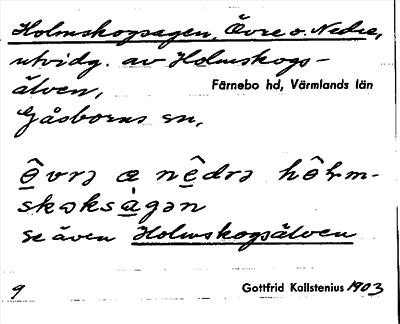 Holmskogsagen, Övre o. Nedre,
utvidg. av Holmskogs-
älven, Färnebo hd, Värmlands län
Gåsborns sn,
ө̂vrə æ nêdrə hө̂lm-
skəksàgən
se även Holmskogsälven
9 Gottfrid Kallstenius 1903